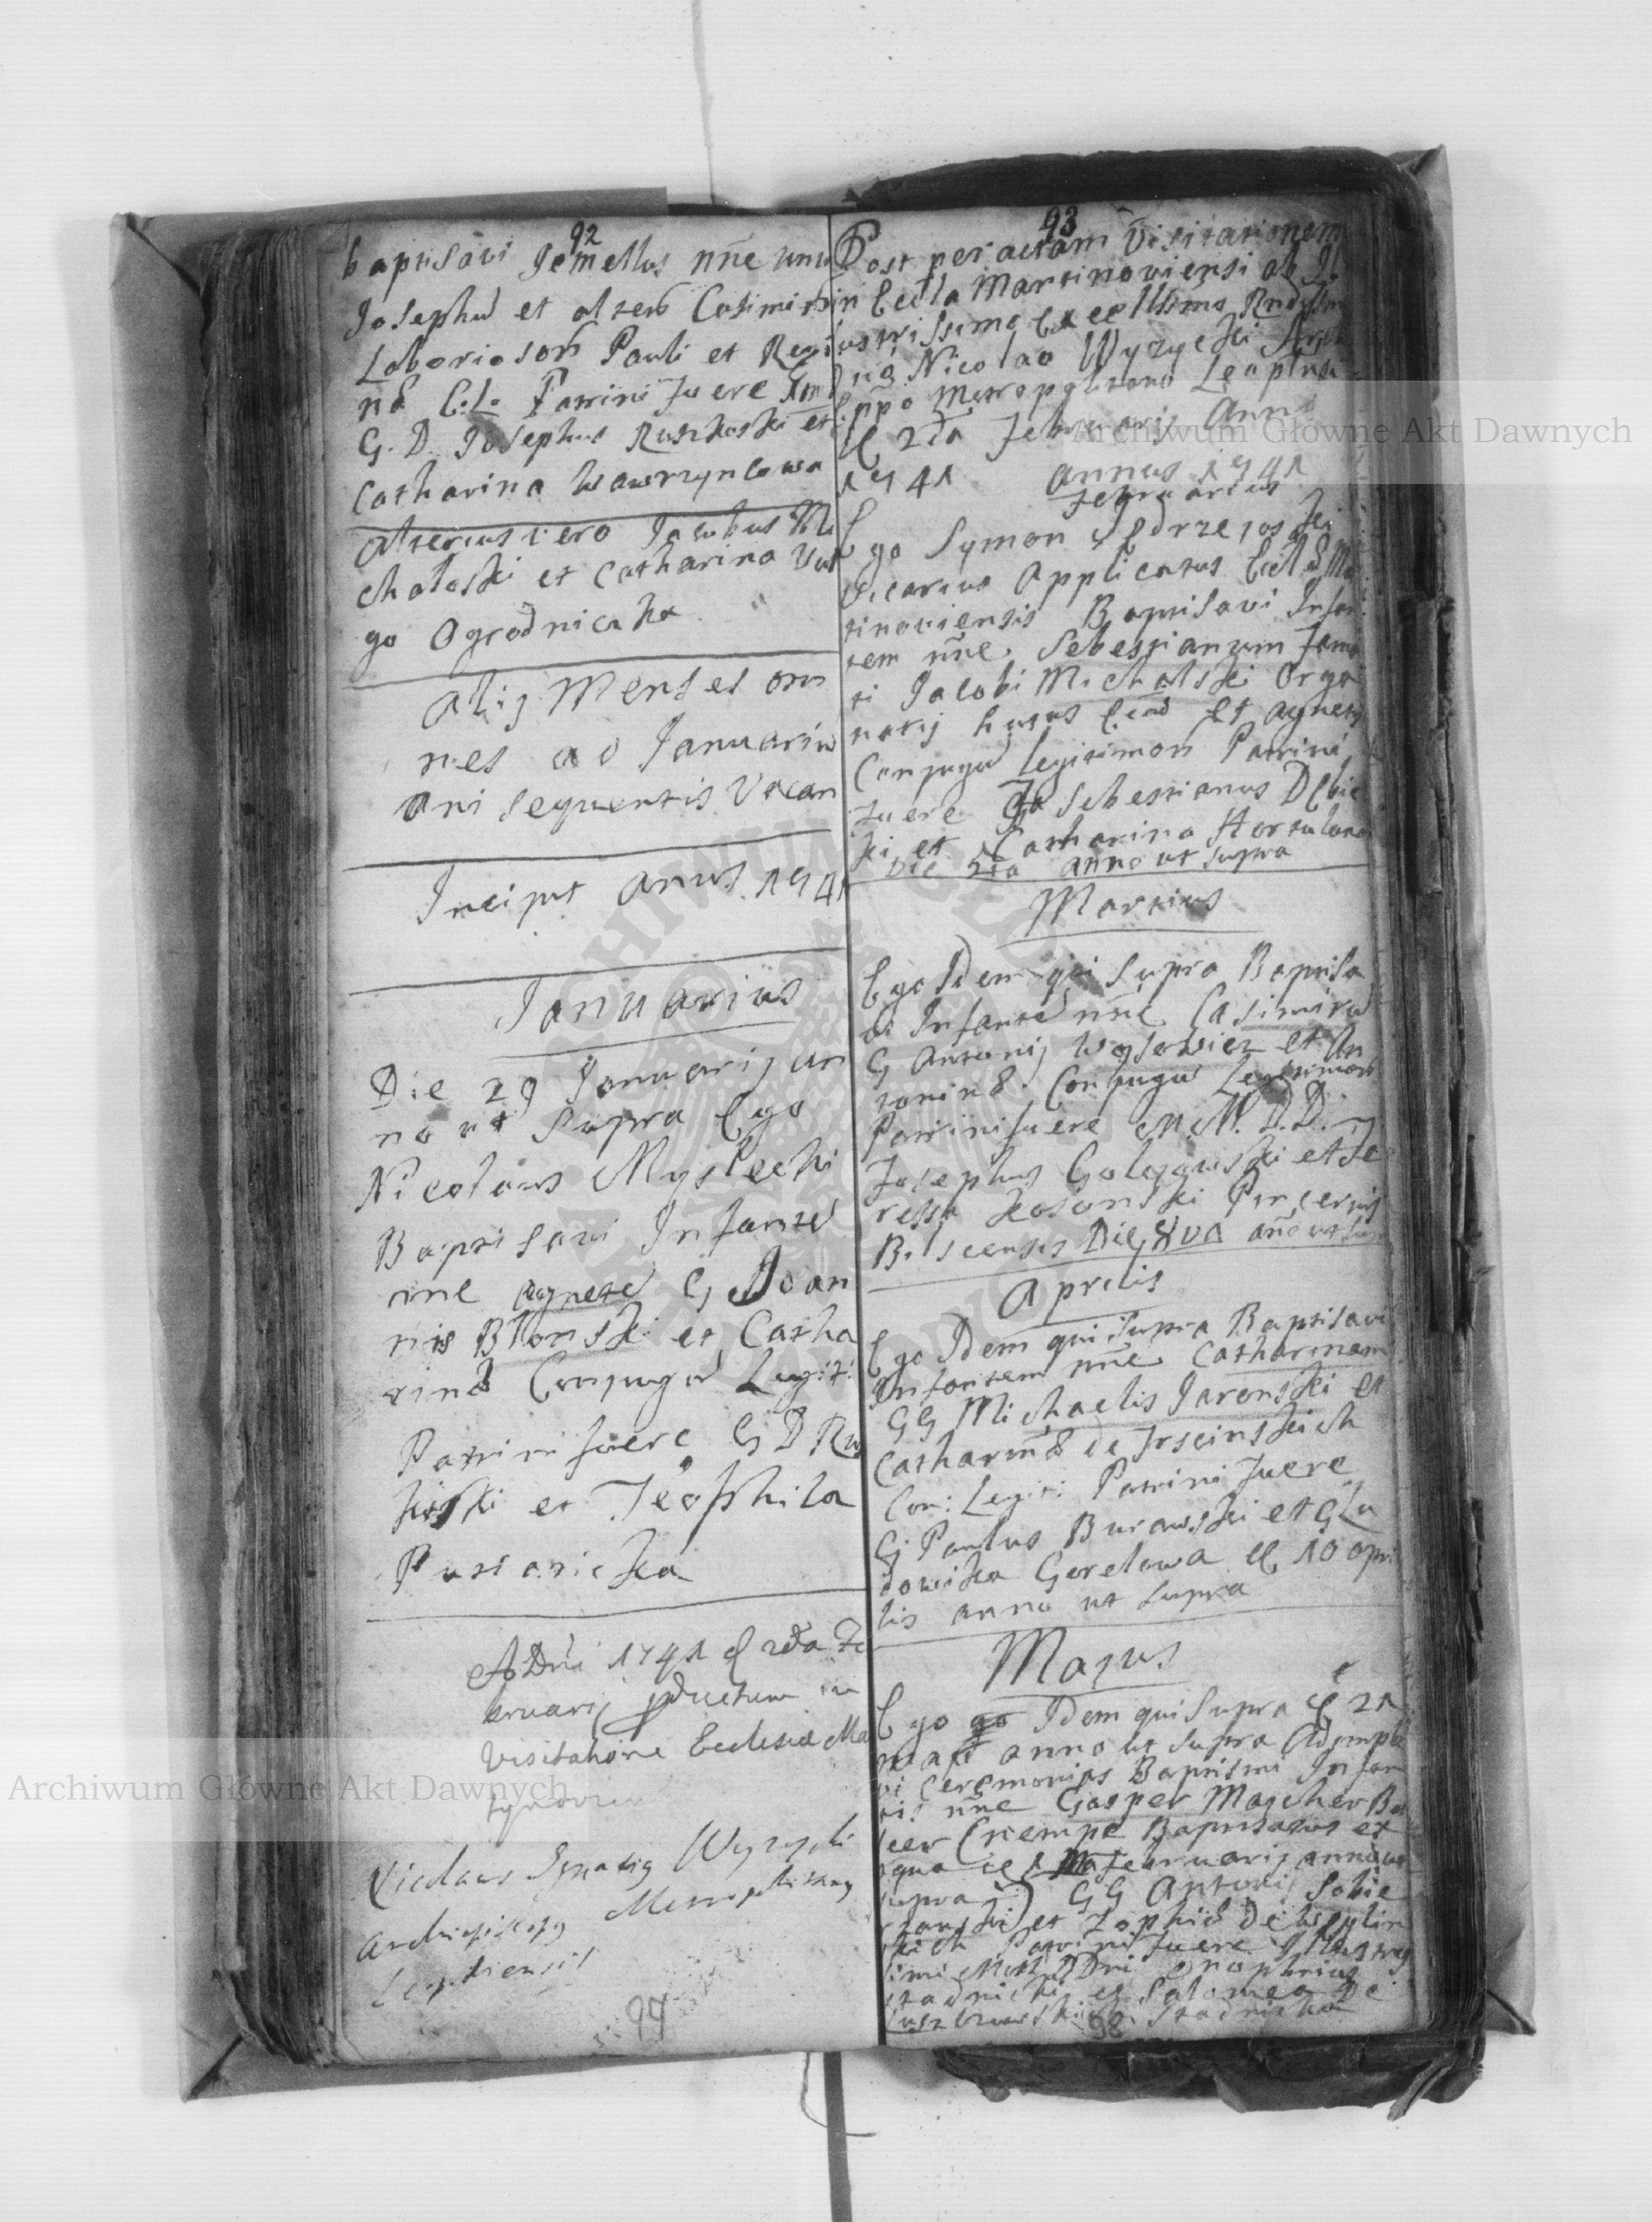 92
baptisavi Jemellus nne unu
Josephu et alteru Casimiru
Laboriosoru Pauli et Regi
na C:L: Patrini fuere
G. D. Josephus Ruszkoski et
Catharina Wawrzyncowa
Alterius vero Jacobus Mi
chaloski et Catharina Vul
go Ogrodniczka
Alij Menses om
nes ad Januariu
Ani sequentis Vacan
Incipit Anus 1741
Januarius
Die 29 Januarij An
no ut Supra Ego
Nicolaus Myslecki
Baptisavi Infante
nne Agnete G Joan
nis Blonski et Catha
rinæ Conjugu Legiti
Patrini fuere G D Ru
koski et Teophila
Pustanicka
Ao Dni 1741 d 2da Fe
bruarij pductum in
Visitatione Ecclesiæ Ma
tynovien
Nicolaus Ignatius Wyzycki
Archiepiscopus Metropolitanus
Leopoliensis
99
93
Post peractam Visitationem
in Eccla Martinoviensi ab Il
ustrissimo Excellssimo Rndssimo
Dno Nicolao Wyzycki Archi
Eppo Metropolitano Leopliensi
d 2da Februarij Anno
1741 Annus 1741
Februarius
Ego Symon Jędrzejoski
Vicarius Applicatus Ecclæ Ma
tinoviensis Baptisavi Infan
tem nne Sebestianum Fama
ti Jacobi Michalski Orga
narij hujus Eccl et Agnetis
Conjugu Legitimoru Patrini
fuere Sebestianus Dębic
ki et Catharina Hortulana
Die 2da anno ut supra
Martius
Ego Idem qui Supra Baptisa
vi Infante nne Casimiru
G Antonij Woysowicz et An
toninæ Conjugu Legitimoru
Patrini fuere M. M. D. D.
Josephus Gologowski et Te
resa Kosonski Pincernis
Bilscensis Die 8va ano ut su
Aprilis
Ego Idem qui supra Baptisavi
Infantem nne Catharinam
GG Michaelis Jaronski et
Catharinæ de Irscinskich
Con: Legit: Patrini fuere
G Paulus Burawski et G Lu
dowika Gorelowa d 10 apri
lis anno ut supra
Majus
Ego Idem qui Supra d 21
maii anno ut supra Adimple
vi Ceremonias Baptismi Infan
tis nne Gasper Majcher Bal
ecr (nempe Baptisatus ex
aqua d 1 Februarij anno ut
supra) GG Antonij Sobie
szanski et Zophiæ De
skich Patrini fuere Illustris
simi M D Dni Onophrius
Stadnicki et Salomea De
Stadnicka
98